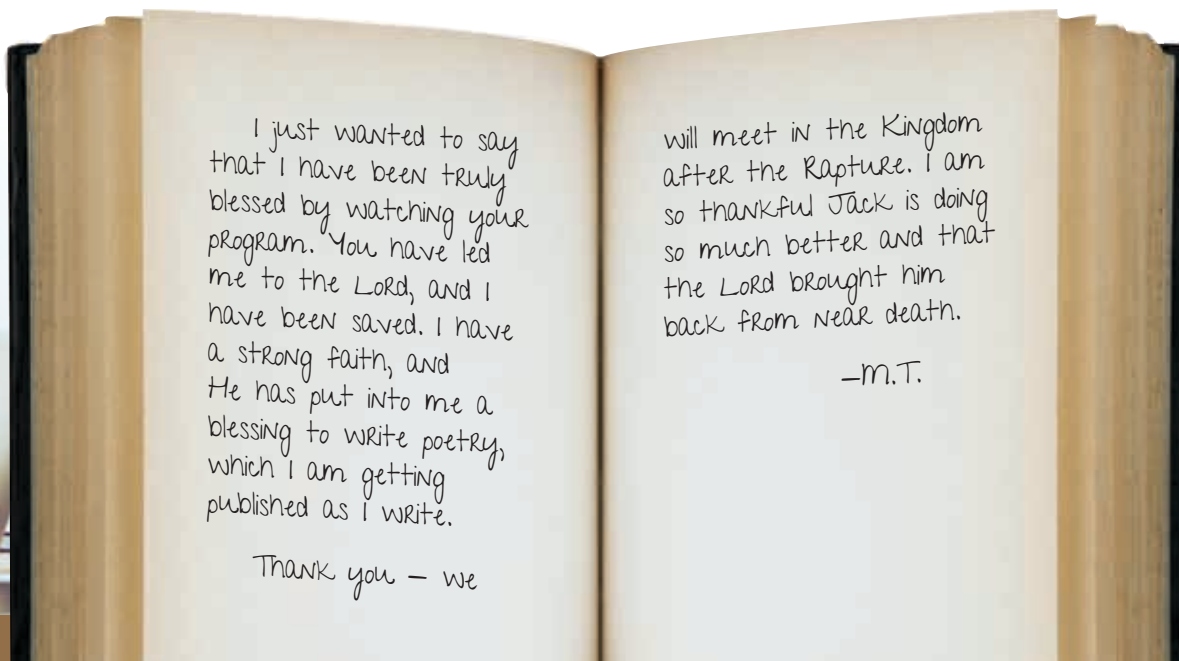 I just wanted to say
that I have been truly
blessed by watching your
program. You have led
me to the Lord, and I
have been saved. I have
a strong faith, and
He has put into me a
blessing to write poetry,
which I am getting
published as I write.
Thank you – we
will meet in the Kingdom
after the Rapture. I am
so thankful Jack is doing
so much better and that
the Lord brought him
back from near death.
–M.T.